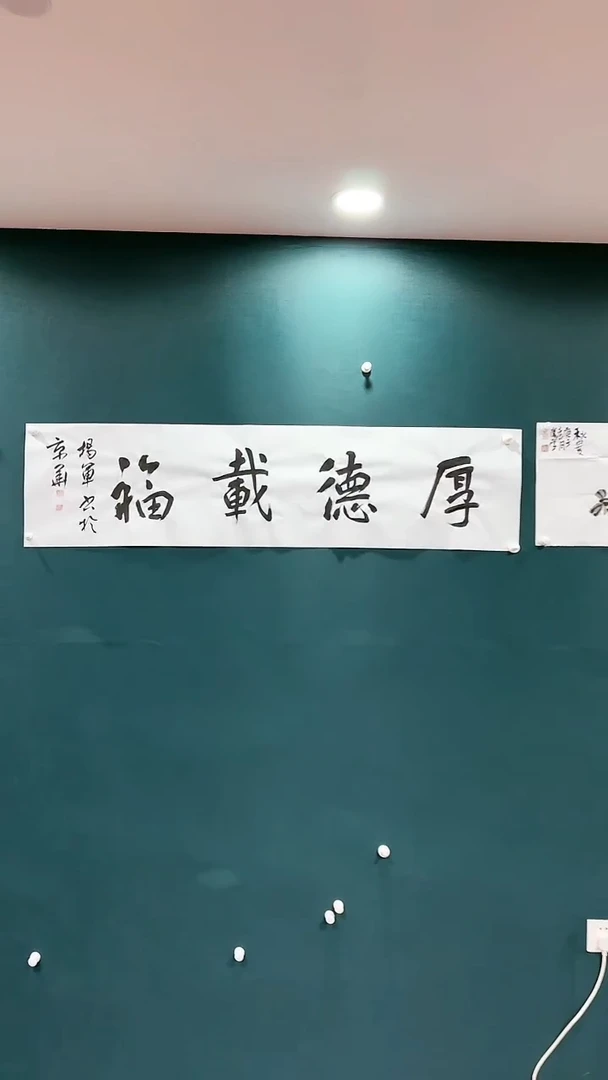 厚德載福
楊軍书於
京華